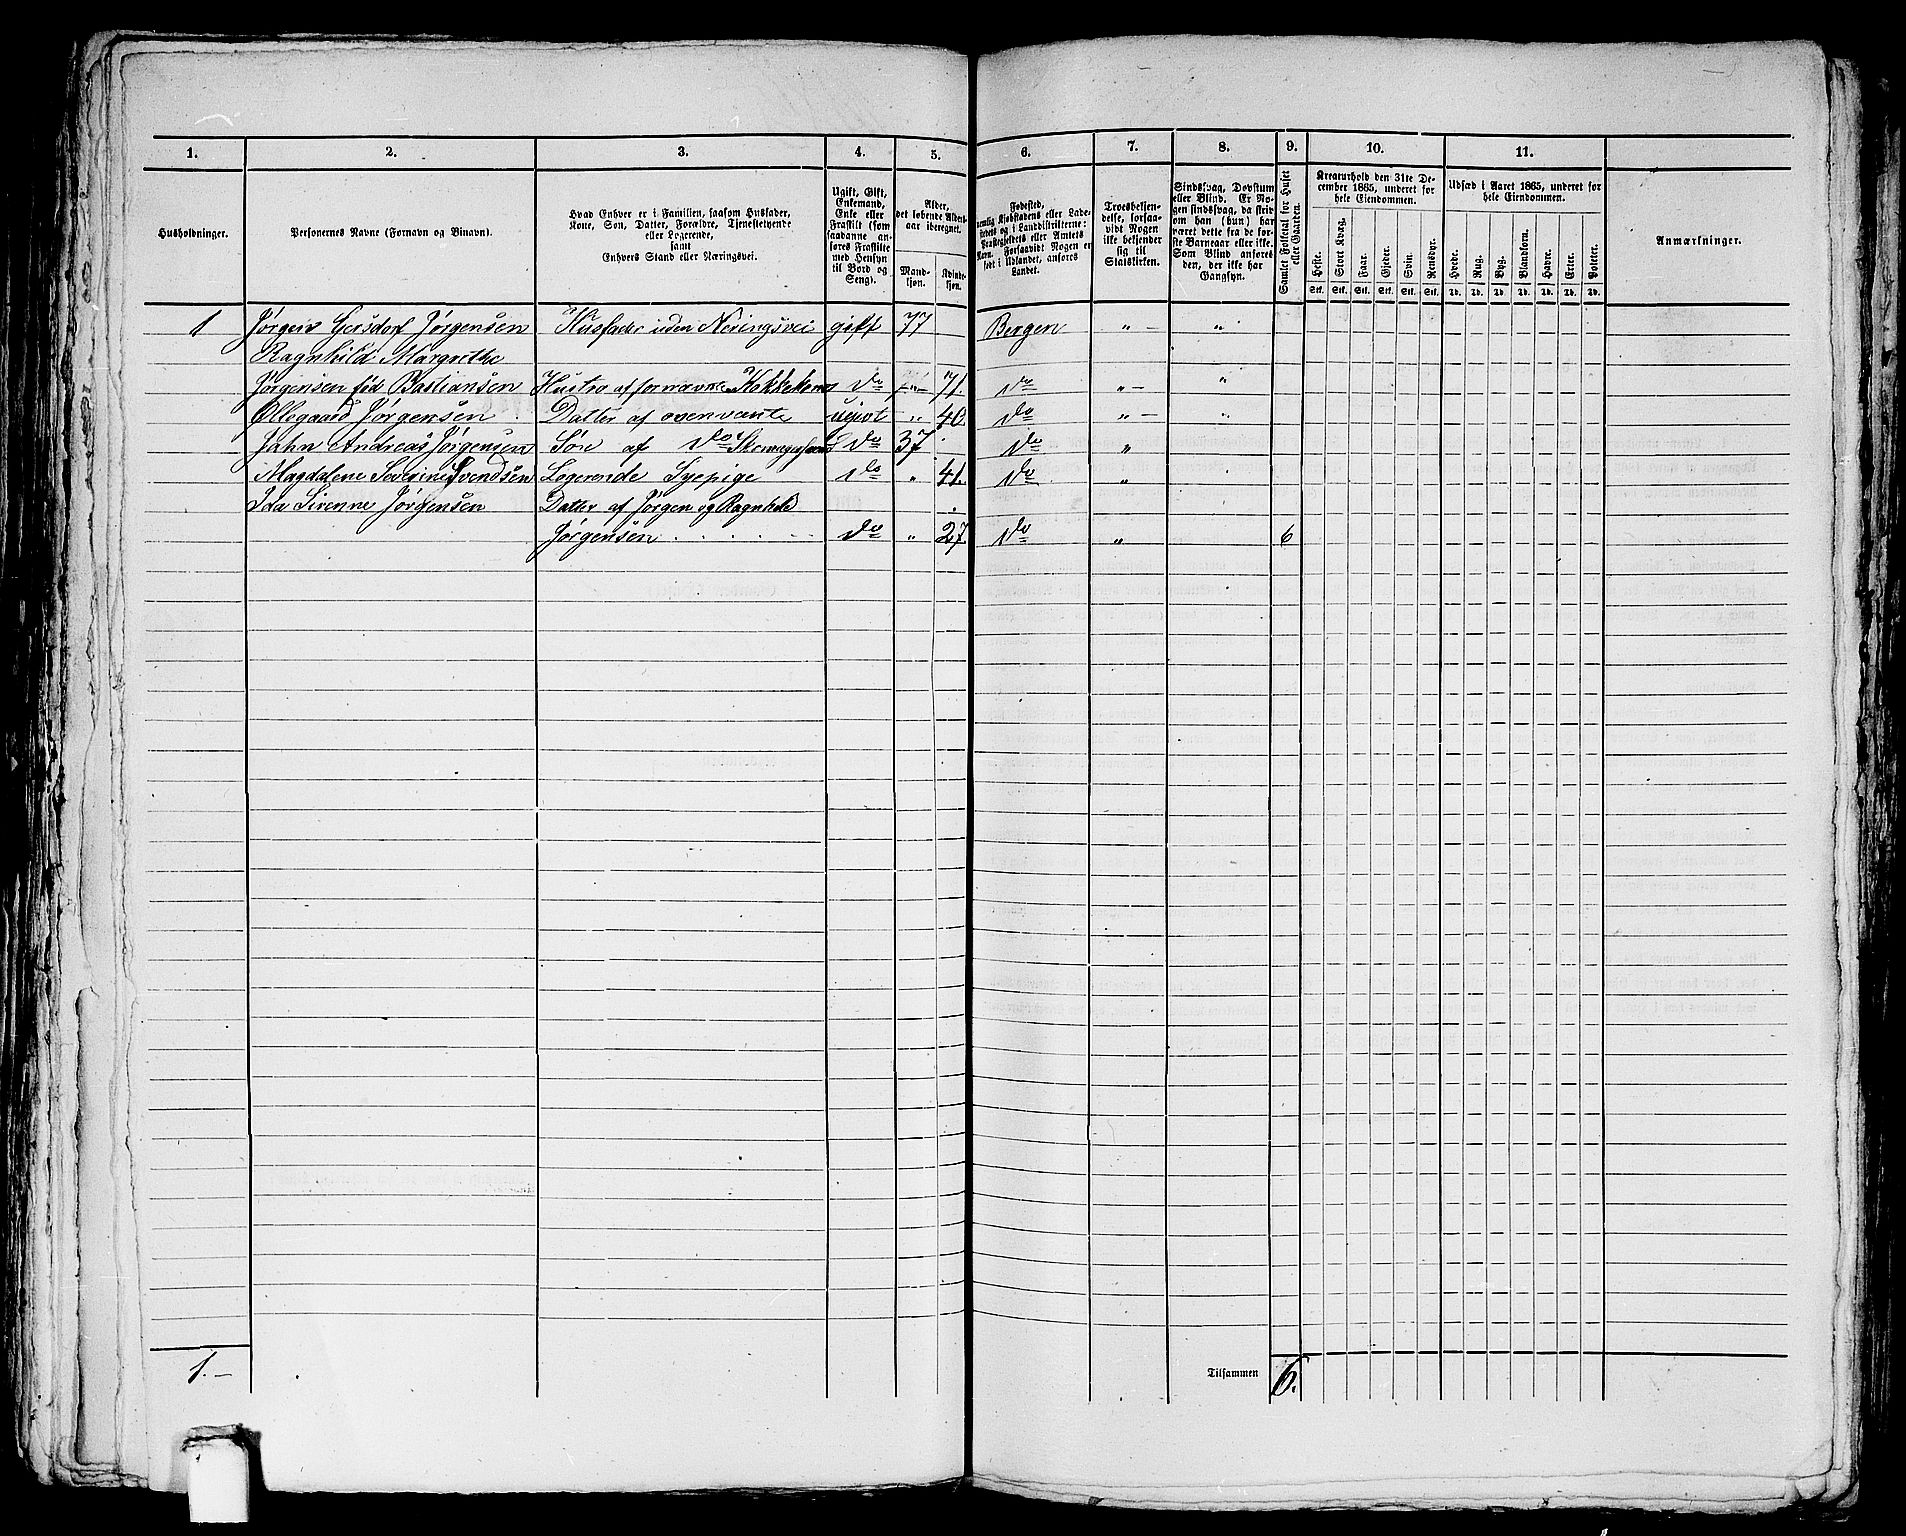 1. 2. 3. 4. 5. 6. 7. 8. 9. 10. 11.
Husholdninger.
Personernes Navne (Fornavn og Binavn).
Hvad Enhver er i Familien, saasom Husfader,
Kone, Søn, Datter, Forældre, Tjenestetyende
eller Logerende,
samt
Enhvers Stand eller Næringsvei.
Ugift, Gift,
Enkemand,
Enke eller
Fraskilt (som
saadanne an-
føres Fraskilte
med Hensyn
til Bord og
Seng).
Alder,
det løbende Alders-
aar iberegnet.
Mand-
kjøn.
Kvinde-
kjøn.
Fødested,
nemlig Kjøbstadens eller Lade-
stedets og i Landdistrikterne:
Præstegjeldets eller Amtets
Navn. Forsaavidt Nogen er
født i Udlandet, anføres
Landet.
Troesbekjen-
delse, forsaa-
vidt Nogen
ikke bekjender
sig til
Statskirken.
Sindssvag, Døvstum
eller Blind. Er No-
gen sindssvag, da skriv
om han (hun) har
været dette fra de før-
ste Barneaar eller ikke.
Som Blind anføres
den, der ikke har
Gangsyn.
Samlet Folketal for Huset
eller Gaarden.
Kreaturhold den 31te De-
cember 1865, underet for
hele Eiendommen.
Heste. Stort Kvæg. Faar. Gjeder. Svin. Rensdyr.
Stk. Stk. Stk. Stk. Stk. Stk.
Udsæd i Aaret 1865, underet for
hele Eiendommen.
Hvede. Rug. Byg. Blandkorn. Havre. Erter. Poteter.
Td. Td. Td. Td. Td. Td. Td.
Anmærkninger.
1 Jørgen Gersdorf Jørgensen Husfader uden Neringsvei gift 77 Bergen „ — „
Ragnhild Margrethe
Jørgensen fød Bastiansen Hustro af fornævnte do — „ — 71. do „ — „
Ollegaard Jørgensen Datter af ovenvænte ugivt „ 40. do „ — „
Jahn Andreas Jørgensen Søn af do do 37 do „
Magdalene Severine Svendsen Logerende Syepige do „ 41. do „
Ida Sirenne Jørgensen Datter af Jørgen og Ragnhild
Jørgensen do „ 27. do „ 6
1. —
Tilsammen 6.